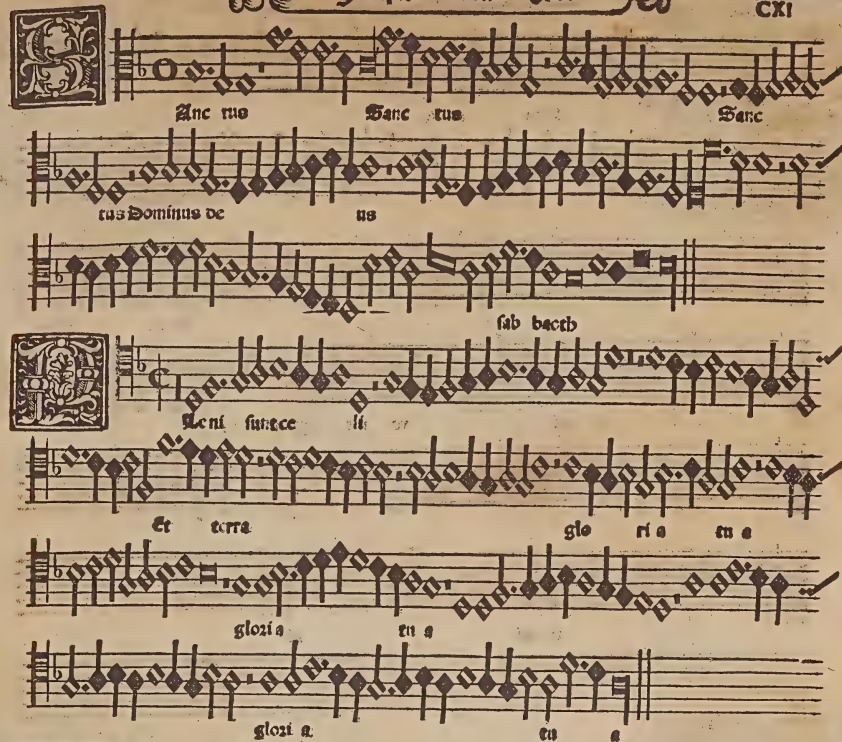 CXI
S
Anc tus Sanc tus Sanc
tus Dominus de us
sab baoth
P
Leni sunt ce li
Et terra glo ri a tu a
glori a tu a
glori a tu a